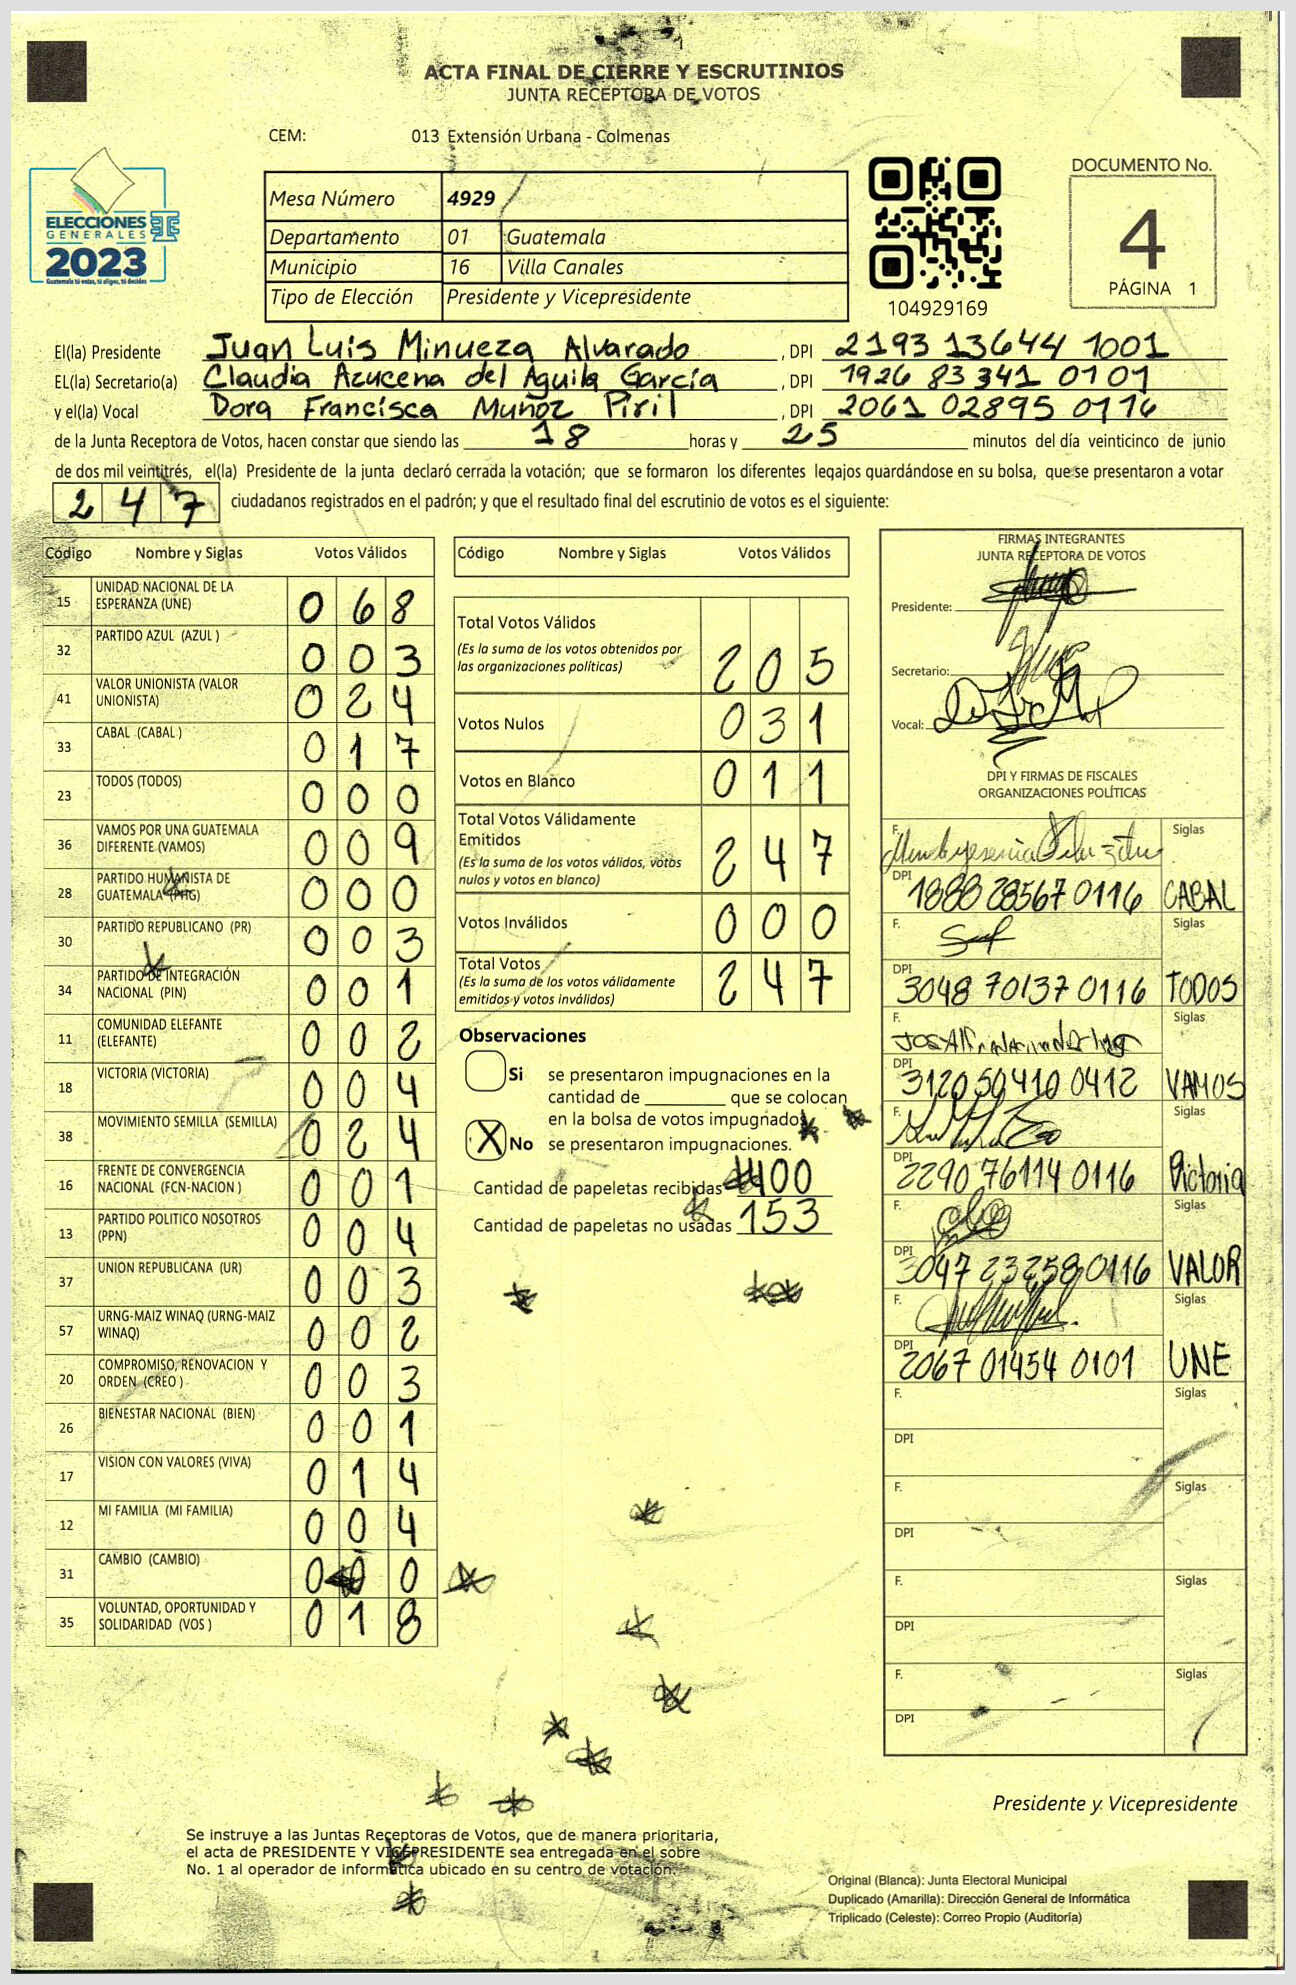 ACTA FINAL DE CIERRE Y ESCRUTINIOS
JUNTA RECEPTORA DE VOTOS
CEM: 013 Extensión Urbana - Colmenas
ELECCIONES
GENERALES
2023
Guatemala tú votas, tú eliges, tú decides
Mesa Número 4929
Departamento 01 Guatemala
Municipio 16 Villa Canales
Tipo de Elección Presidente y Vicepresidente
104929169
DOCUMENTO No.
4
PÁGINA 1
El(la) Presidente Juan Luis Minueza Alvarado , DPI 2193 13644 1001
EL(la) Secretario(a) Claudia Azucena del Aguila García , DPI 1926 83341 0101
y el(la) Vocal Dora Francisca Muñoz Piril , DPI 2061 02895 0116
de la Junta Receptora de Votos, hacen constar que siendo las 18 horas y 25 minutos del día veinticinco de junio
de dos mil veintitrés, el(la) Presidente de la junta declaró cerrada la votación; que se formaron los diferentes legajos quardándose en su bolsa, que se presentaron a votar
247 ciudadanos registrados en el padrón; y que el resultado final del escrutinio de votos es el siguiente:
Código Nombre y Siglas Votos Válidos
15 UNIDAD NACIONAL DE LA ESPERANZA (UNE) 068
32 PARTIDO AZUL (AZUL ) 003
41 VALOR UNIONISTA (VALOR UNIONISTA) 024
33 CABAL (CABAL ) 017
23 TODOS (TODOS) 000
36 VAMOS POR UNA GUATEMALA DIFERENTE (VAMOS) 009
28 PARTIDO HUMANISTA DE GUATEMALA (PHG) 000
30 PARTIDO REPUBLICANO (PR) 003
34 PARTIDO DE INTEGRACIÓN NACIONAL (PIN) 001
11 COMUNIDAD ELEFANTE (ELEFANTE) 002
18 VICTORIA (VICTORIA) 004
38 MOVIMIENTO SEMILLA (SEMILLA) 024
16 FRENTE DE CONVERGENCIA NACIONAL (FCN-NACION ) 001
13 PARTIDO POLITICO NOSOTROS (PPN) 004
37 UNION REPUBLICANA (UR) 003
57 URNG-MAIZ WINAQ (URNG-MAIZ WINAQ) 002
20 COMPROMISO, RENOVACION Y ORDEN (CREO ) 003
26 BIENESTAR NACIONAL (BIEN) 001
17 VISION CON VALORES (VIVA) 014
12 MI FAMILIA (MI FAMILIA) 004
31 CAMBIO (CAMBIO) 000
35 VOLUNTAD, OPORTUNIDAD Y SOLIDARIDAD (VOS ) 018
Código Nombre y Siglas Votos Válidos
Total Votos Válidos
(Es la suma de los votos obtenidos por
las organizaciones políticas) 205
Votos Nulos 031
Votos en Blanco 011
Total Votos Válidamente
Emitidos
(Es la suma de los votos válidos, votos
nulos y votos en blanco) 247
Votos Inválidos 000
Total Votos
(Es la suma de los votos válidamente
emitidos y votos inválidos) 247
Observaciones
Si se presentaron impugnaciones en la
cantidad de ________ que se colocan
en la bolsa de votos impugnados
X No se presentaron impugnaciones.
Cantidad de papeletas recibidas 400
Cantidad de papeletas no usadas 153
FIRMAS INTEGRANTES
JUNTA RECEPTORA DE VOTOS
Presidente:
Secretario:
Vocal:
DPI Y FIRMAS DE FISCALES
ORGANIZACIONES POLÍTICAS
F. Siglas
DPI 1888 28567 0116 CABAL
F. Siglas
DPI 3048 70137 0116 TODOS
F. Siglas
DPI 3120 50410 0412 VAMOS
F. Siglas
DPI 2290 76114 0116 Victoria
F. Siglas
DPI 3047 23258 0116 VALOR
F. Siglas
DPI 2067 01454 0101 UNE
F. Siglas
DPI
F. Siglas
DPI
F. Siglas
DPI
F. Siglas
DPI
Presidente y Vicepresidente
Se instruye a las Juntas Receptoras de Votos, que de manera prioritaria,
el acta de PRESIDENTE Y VICEPRESIDENTE sea entregada en el sobre
No. 1 al operador de informática ubicado en su centro de votación.
Original (Blanca): Junta Electoral Municipal
Duplicado (Amarilla): Dirección General de Informática
Triplicado (Celeste): Correo Propio (Auditoría)